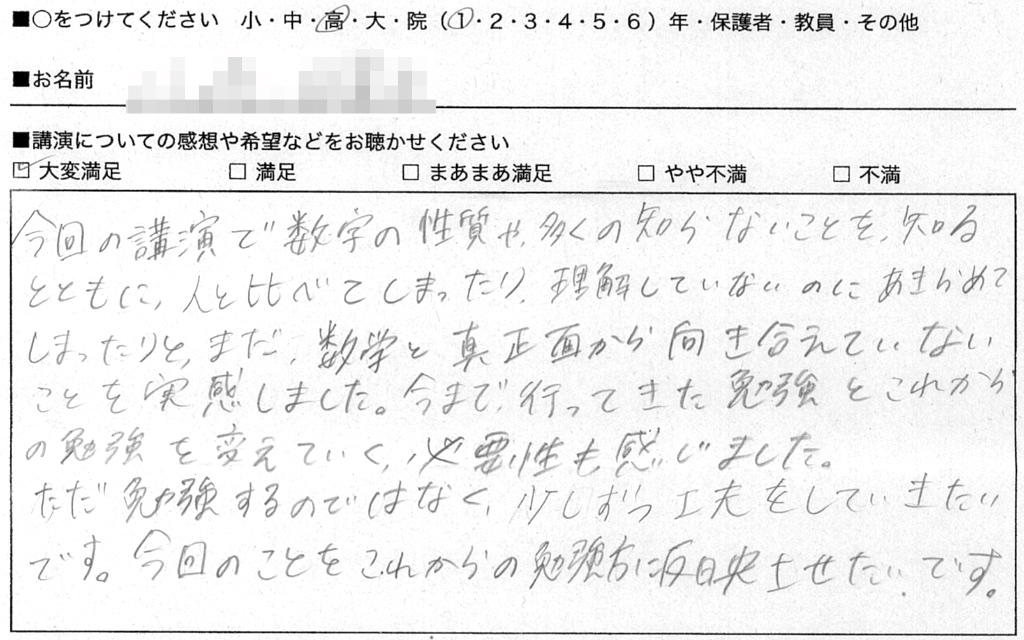 ■○をつけてください 小・中・高・大・院（1・2・3・4・5・6）年・保護者・教員・その他
■お名前
■講演についての感想や希望などをお聴かせください
☑ 大変満足 □ 満足 □ まあまあ満足 □ やや不満 □ 不満
今回の講演で数字の性質や、多くの知らないことを、知る
とともに、人と比べてしまったり、理解していないのにあきらめて
しまったりと、まだ、数学と真正面から向き合えていない
ことを実感しました。今まで、行ってきた勉強とこれから
の勉強を変えていく、必要性も感じました。
ただ勉強するのではなく、少しずつ工夫をしていきたい
です。今回のことをこれからの勉強方に反映させたいです。